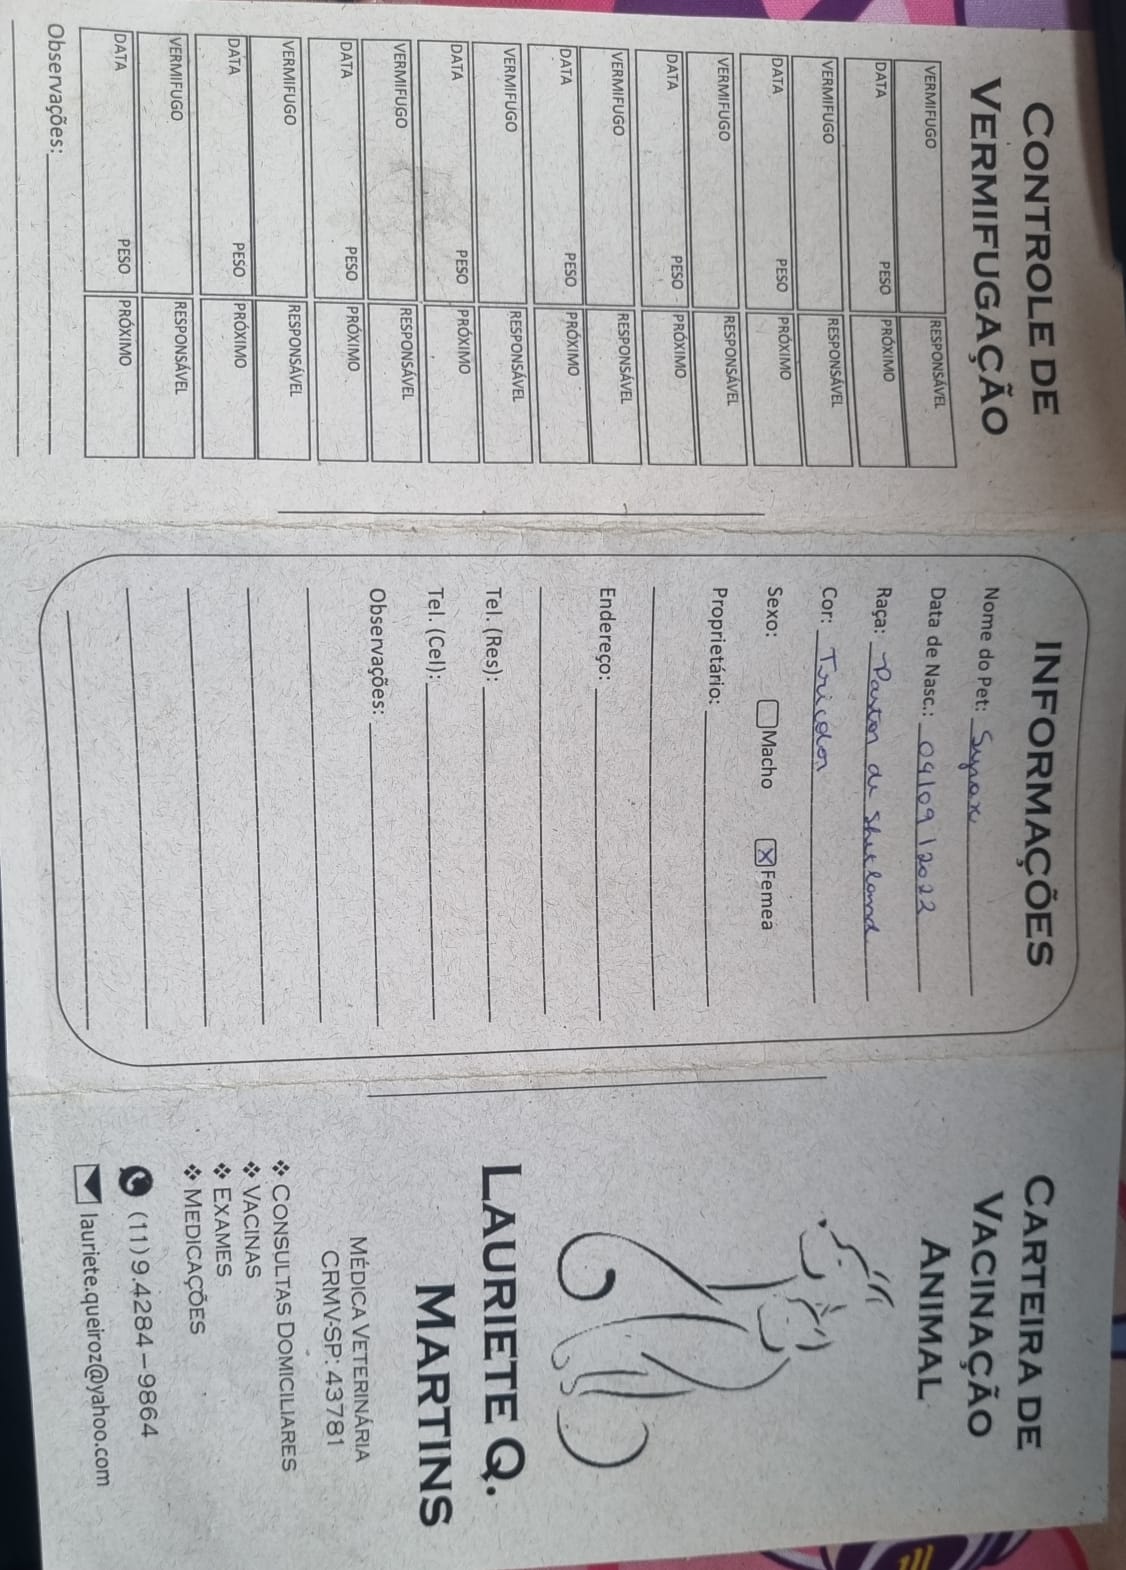 CONTROLE DE
VERMIFUGAÇÃO
VERMIFUGO RESPONSÁVEL
DATA PESO PRÓXIMO
VERMIFUGO RESPONSÁVEL
DATA PESO PRÓXIMO
VERMIFUGO RESPONSÁVEL
DATA PESO PRÓXIMO
VERMIFUGO RESPONSÁVEL
DATA PESO PRÓXIMO
VERMIFUGO RESPONSÁVEL
DATA PESO PRÓXIMO
VERMIFUGO RESPONSÁVEL
DATA PESO PRÓXIMO
VERMIFUGO RESPONSÁVEL
DATA PESO PRÓXIMO
VERMIFUGO RESPONSÁVEL
DATA PESO PRÓXIMO
Observações:
INFORMAÇÕES
Nome do Pet:
Data de Nasc.: 04/09/2022
Raça: Pastor de Shetland
Cor: Tricolor
Sexo: Macho X Femea
Proprietário:
Endereço:
Tel. (Res):
Tel. (Cel):
Observações:
CARTEIRA DE
VACINAÇÃO
ANIMAL
LAURIETE Q.
MARTINS
MÉDICA VETERINÁRIA
CRMV-SP: 43781
❖ CONSULTAS DOMICILIARES
❖ VACINAS
❖ EXAMES
❖ MEDICAÇÕES
(11) 9.4284-9864
lauriete.queiroz@yahoo.com